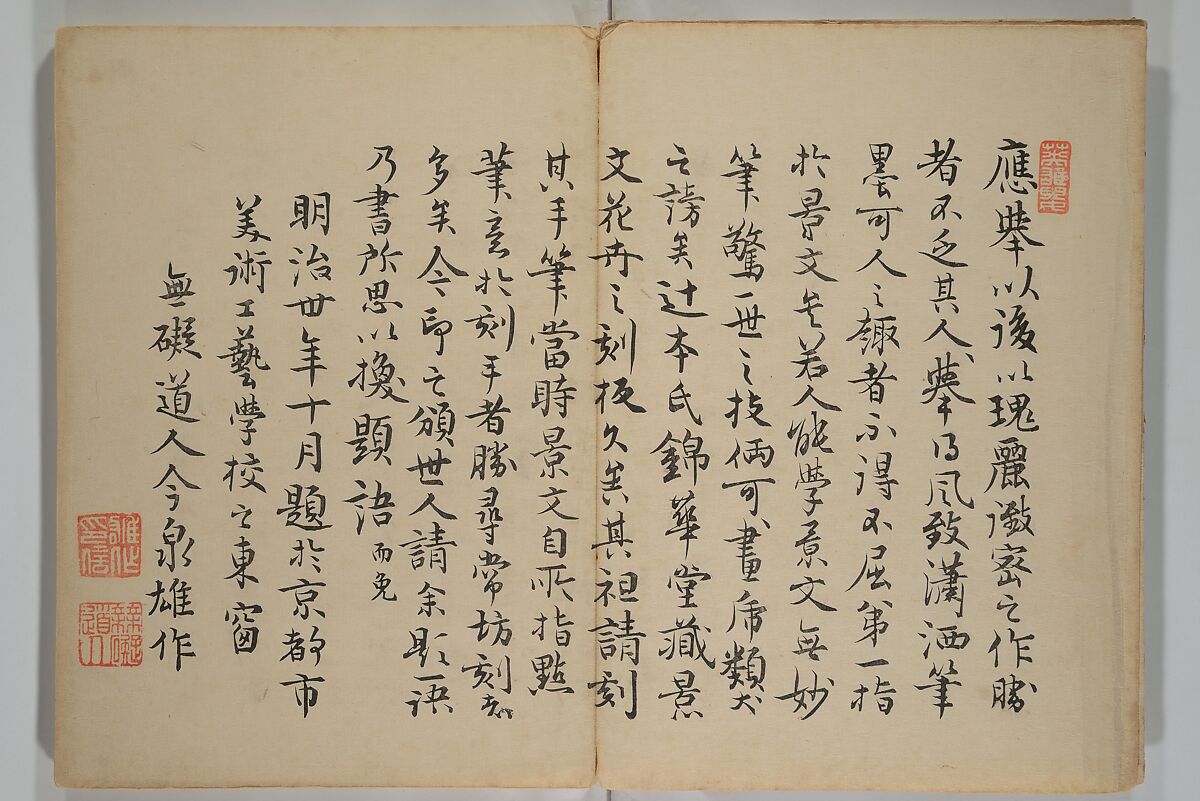 應擧以後以瑰麗緻密之作勝
者不乏其人風致瀟洒筆
墨可人之趣者不得不屈第一指
於景文矣若人能學景文無妙
筆驚世之技倆可畫虎類犬
之謗矣辻本氏錦華堂藏景
文花卉之刻板久矣其祖請刻
其手筆當時景文自所指點
筆意於刻手者勝尋常坊刻者
多矣今印之頒世人請余題一語
乃書所思以換題語而免
明治卅年十月題於京都市
美術工藝學校之東窗
無礙道人今泉雄作
雄作印信